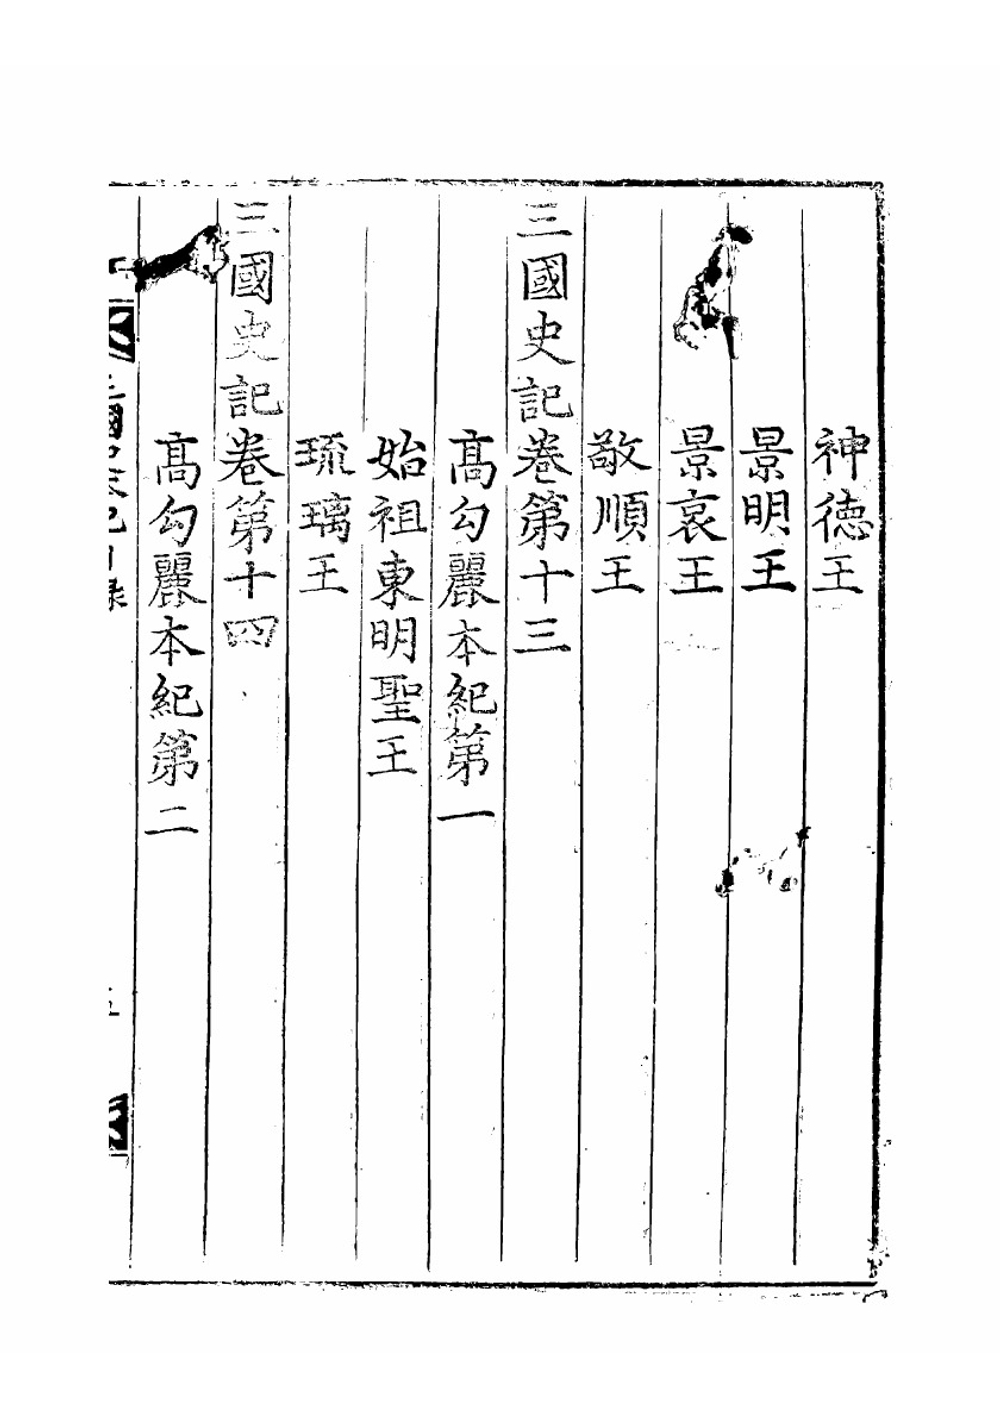 神德王
景明王
景哀王
敬順王
三國史記卷第十三
髙勾麗本紀第一
始祖東明聖王
琉璃王
三國史記卷第十四
髙勾麗本紀第二